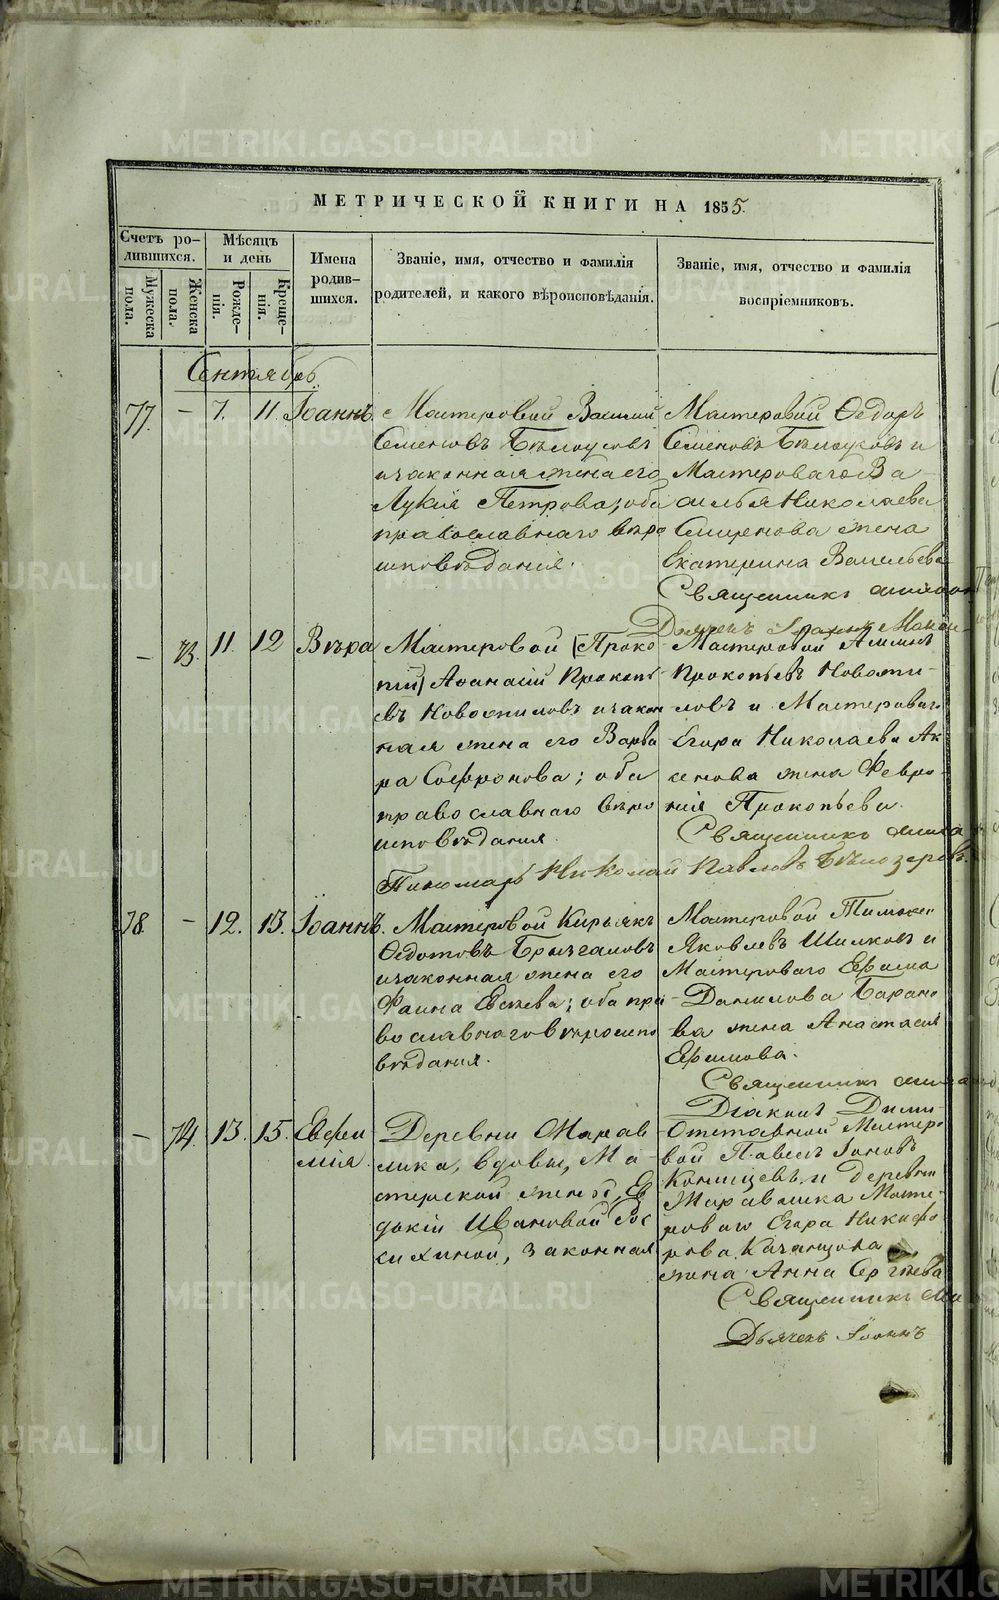 МЕТРИЧЕСКОЙ КНИГИ НА 1855.
Счетъ ро-
дившихся.
Мужеска
пола.
Женска
пола.
Мѣсяцъ
и день
Рожде-
нія.
Креще-
нія.
Имена
родив-
шихся.
Званіе, имя, отчество и фамилія
родителей, и какого вѣроисповѣданія.
Званіе, имя, отчество и фамилія
воспріемниковъ.
Сентябрь
77. – 7. 11. Іоаннъ.
Мастеровой Василій
Семеновъ Бѣлоусовъ
и законная жена его
Лукія Петрова; оба
православнаго вѣро
исповѣданія.
Мастеровой Ѳедоръ
Семеновъ Бѣлоусовъ и
Мастероваго Ва
силья Николаева
жена
Екатерина Васильева
Священникъ
Дьячекъ Іоаннъ
– 73. 11. 12 Вѣра
Мастеровой [Проко
пій] Аѳанасій Прокопь
евъ Новоспиловъ и закон
ная жена его Варва
ра Софронова; оба
православнаго вѣро
исповѣданія.
Мастеровой
Прокопьевъ
и Мастероваго
Егора Николаева Ак
сенова жена Февро
нія Прокопьева.
Священникъ
Пономарь Николай Павловъ Бѣлозеровъ.
78. – 12. 13. Іоаннъ.
Мастеровой Кирьякъ
Ѳедотовъ Брызгаловъ
и законная жена его
Фаина ; оба пра
вославнаго вѣроиспо
вѣданія.
Мастеровой Тимоѳей
Яковлевъ Шилковъ и
Мастероваго Ефима
Данилова Барано
ва жена Анастасія
Ефимова.
Священникъ
Діаконъ Дими
– 74. 13. 15. Евфи
мія.
Деревни Журав
лика, вдовы, Ма
стерской жены, Ев
докіи Ивановой Рос
кихиной, законная
Отставной Мастеро
вой Павелъ Іоновъ
и деревни
Журавлика Масте
роваго Егора Никифо
рова Казанцова
жена Анна Сергѣева
Священникъ Ми
Дьячекъ Іоаннъ
METRIKI.GASO-URAL.RU